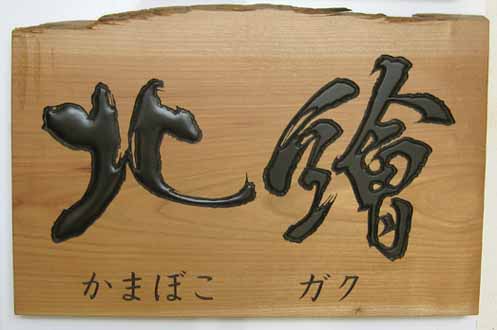 北繪
かまぼこ ガク